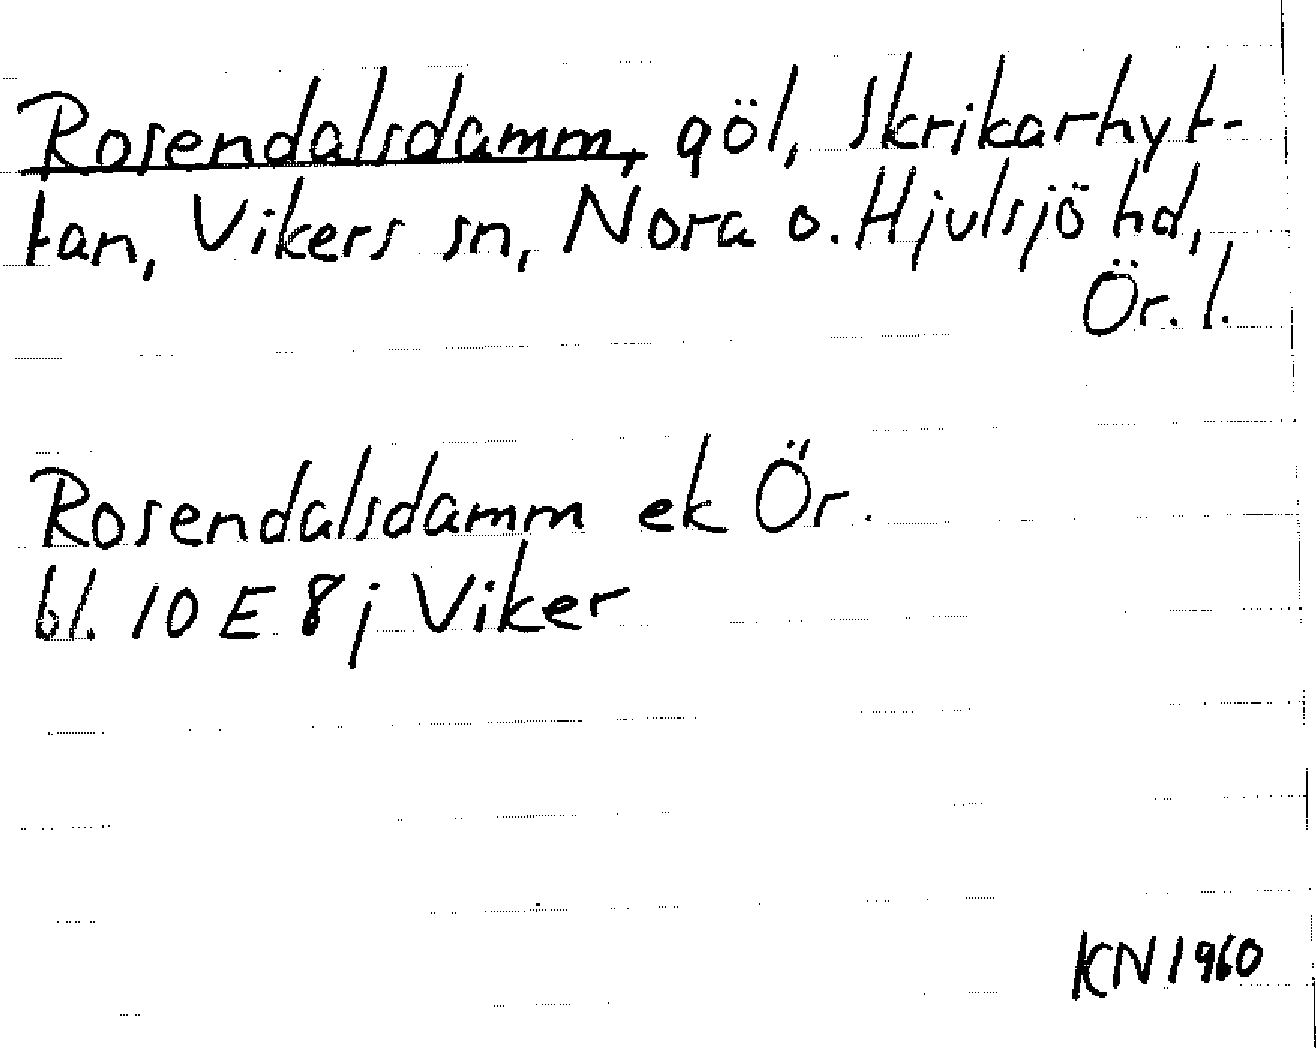 Rosendalsdamm, göl, Skrikarhyt-
tan, Vikers sn, Nora o. Hjulsjö hd,
Ör. l.
Rosendalsdamm ek Ör.
bl. 10 E 8 j Viker
KN 1960